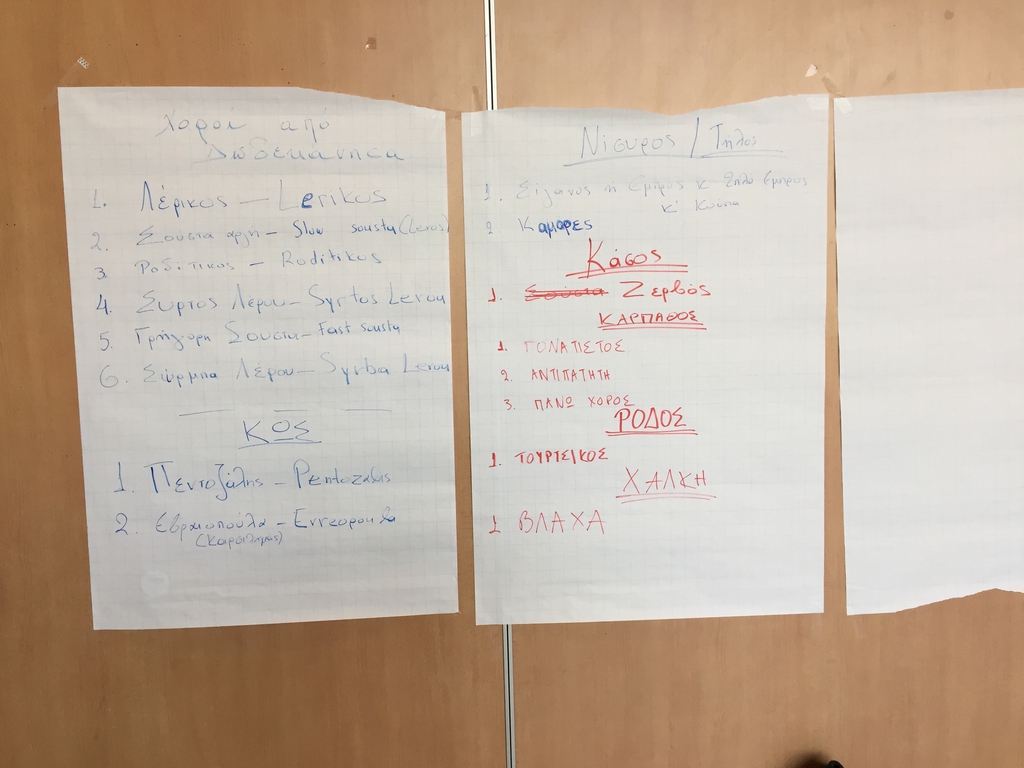 Χοροι από
Δωδεκανησα
1. Λέρικος – Lerikos
2. Σουστα αργη – Slow sousta (Leros)
3. Ροδίτικος – Roditikos
4. Συρτος Λέρου – Syrtos Lerou
5. Γρήγορη Σουστα – Fast sousta
6. Σιύρμπα Λέρου – Syrba Lerou
ΚΩΣ
1. Πεντοζάλης – Pentozalis
2. Εβραιοπούλα –
Νίσυρος / Τήλος
1. Σίγανος ή κ
κ' Κούπα
2 Καμαρες
Κάσος
1. Σούστα Ζερβός
ΚΑΡΠΑΘΟΣ
1. ΓΟΝΑΤΙΣΤΟΣ
2. ΑΝΤΙΠΑΤΗΤΗ
3. ΠΑΝΩ ΧΟΡΟΣ
ΡΟΔΟΣ
1. ΤΟΥΡΤΣΙΚΟΣ
ΧΑΛΚΗ
1 ΒΛΑΧΑ